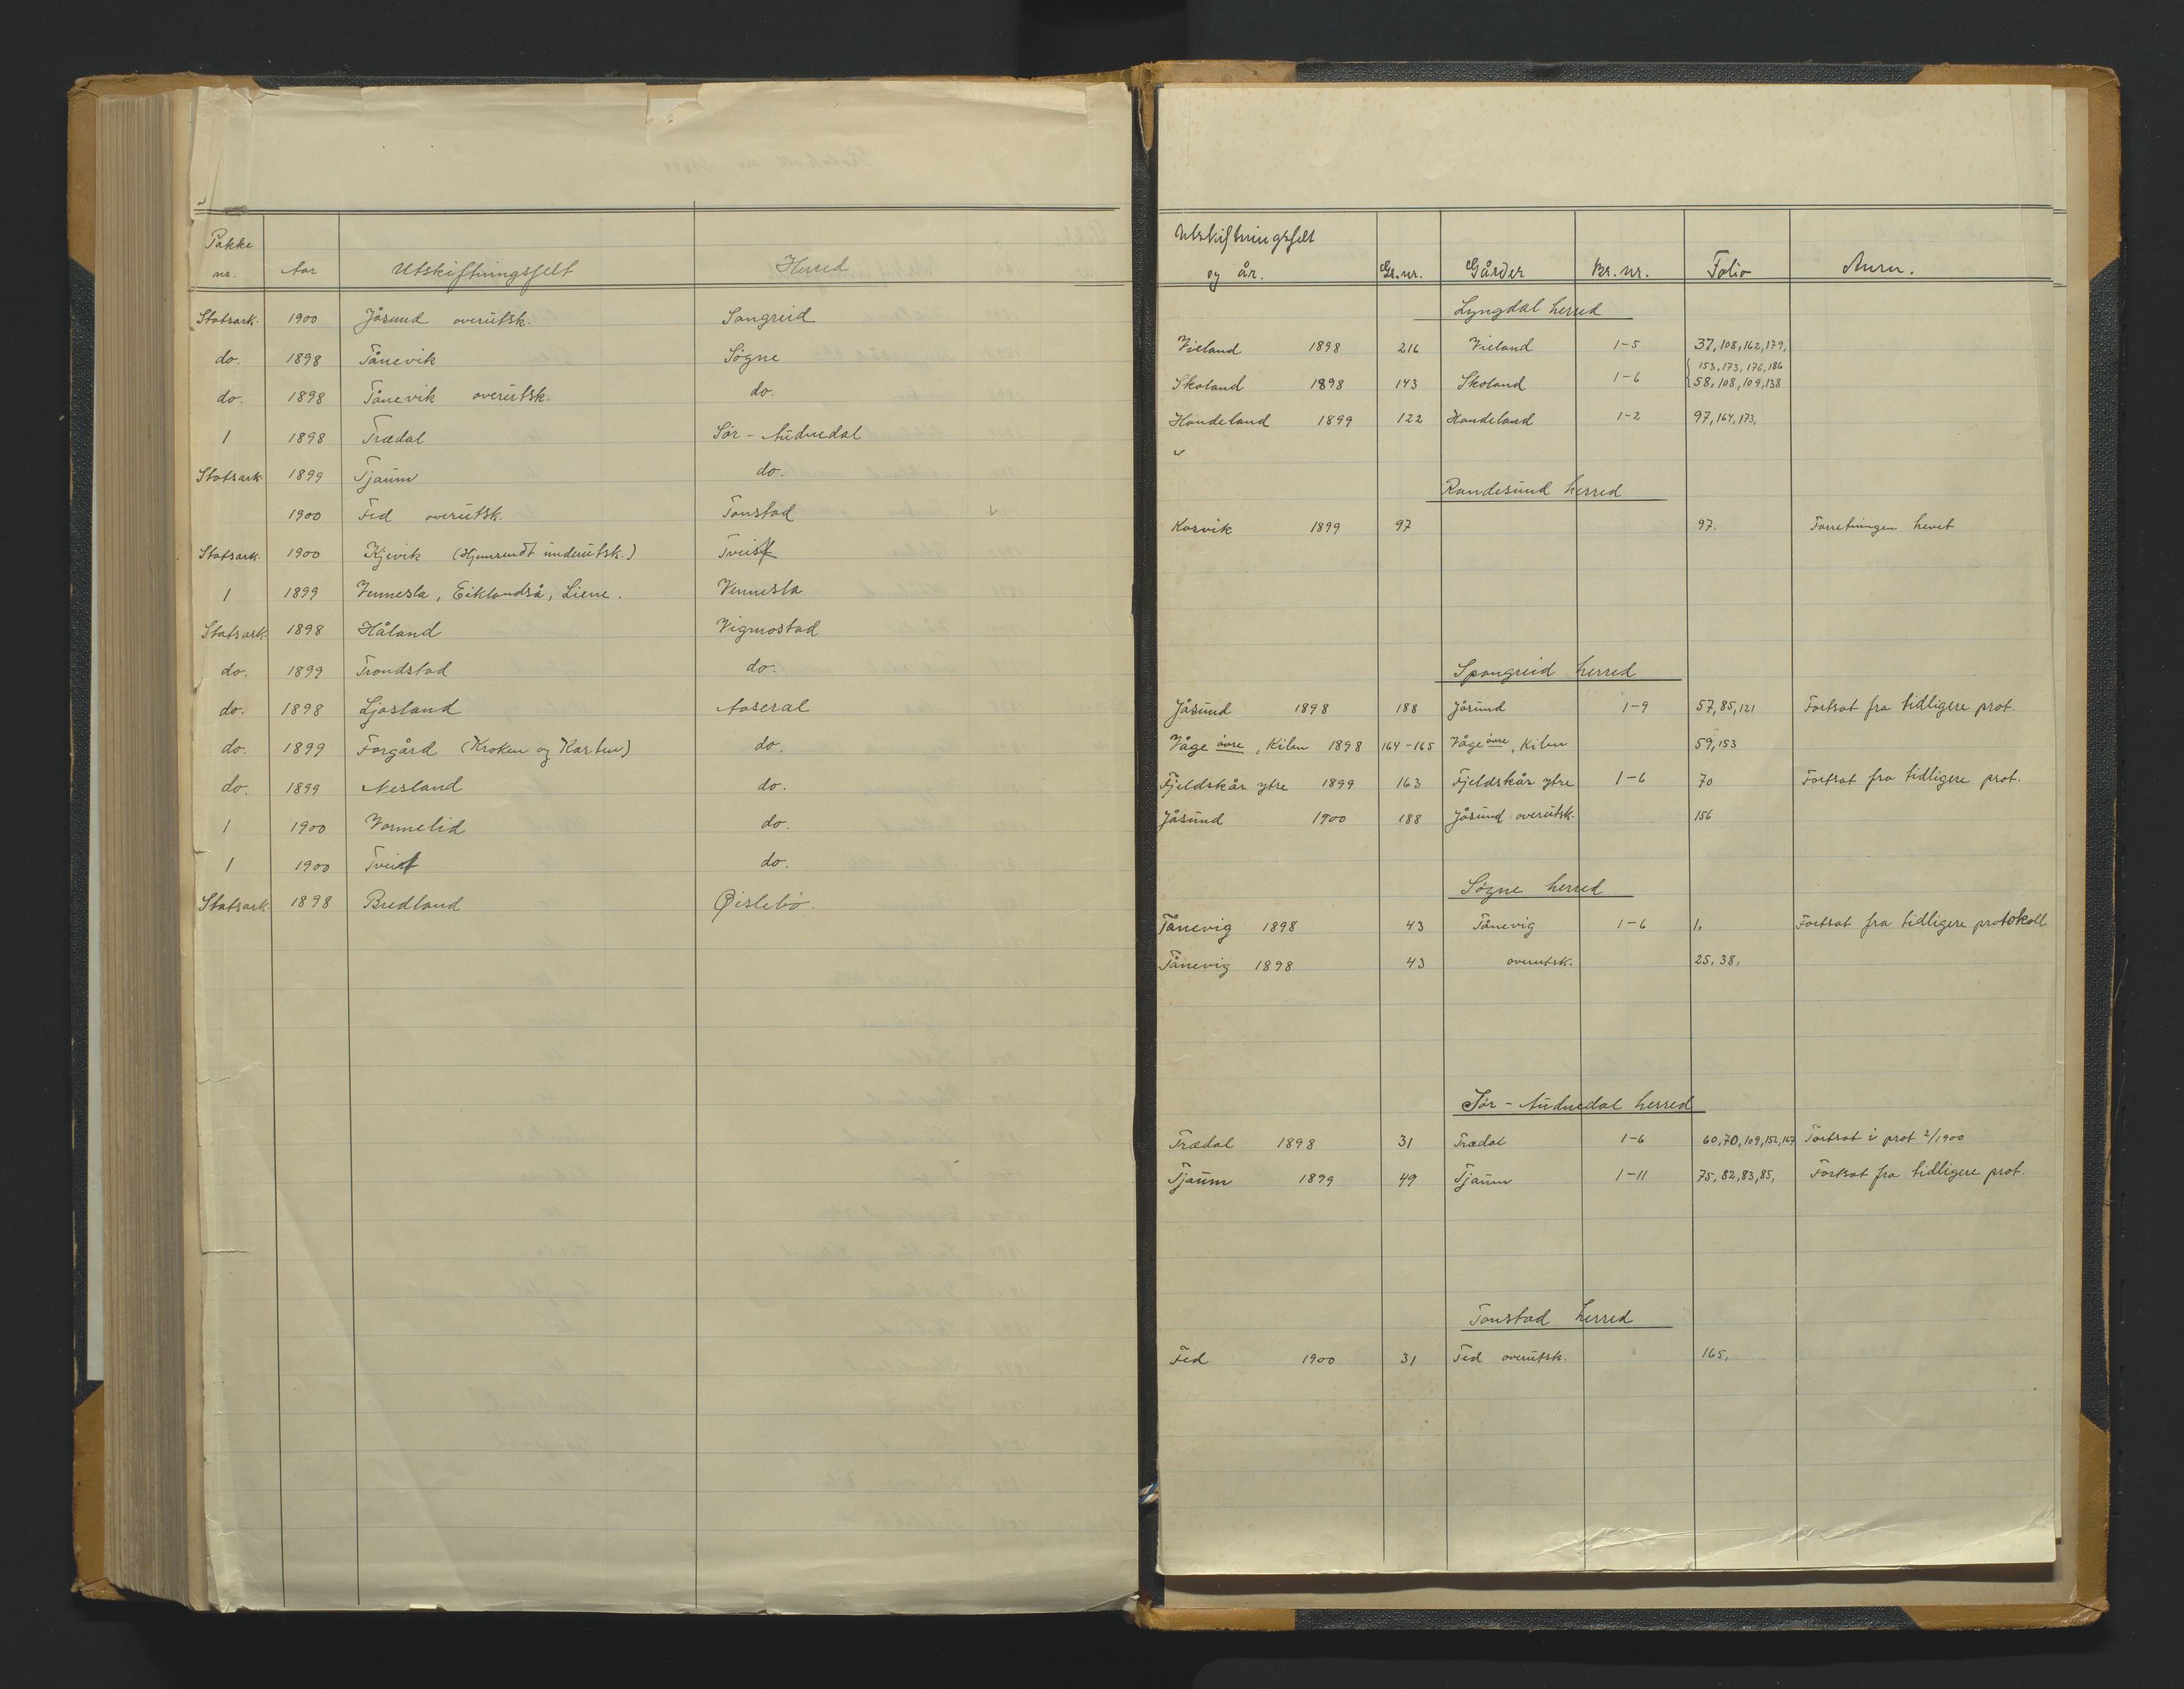 Pakke
nr. Aar Utskiftningsfelt Herred
Statsark. 1900 Jåsund overutsk. Sangreid
do. 1898 Tånevik Søgne
do. 1898 Tånevik overutsk. do.
1 1898 Trædal Sör-Audnedal
Statsark. 1899 Tjaum do.
1900 Fed overutsk. Tonstad
Statsark. 1900 Kjevik (Hjemrendt underutsk.) Tveit
1 1899 Vennesla, Eiklandså, Liene. Vennesla
Statsark. 1898 Håland Vigmostad
do. 1899 Trondstad do.
do. 1898 Ljosland Aaseral
do. 1899 Forgård (Kroken og Karten) do.
do. 1899 Nesland do.
1 1900 Vormelid do.
1 1900 Tveit do.
Statsark. 1898 Bredland Øislebö.
Utskiftningsfelt
og år. Gr.nr. Gårder Br.nr. Folio Anm.
Lyngdal herred
Vieland 1898 216 Vieland 1-5 37, 108, 162, 179,
153, 173, 176, 186
Skoland 1898 143 Skoland 1-6 58, 108, 109, 138
Handeland 1899 122 Handeland 1-2 97, 164, 173,
Randesund herred
Korsvik 1899 97 97. Forretningen hevet
Spangreid herred
Jåsund 1898 188 Jåsund 1-9 57, 85, 121 Fortsat fra tidligere prot.
Våge övre, Kilen 1898 164-165 Våge övre, Kilen 59, 153
Fjeldskår ytre 1899 163 Fjeldskår ytre 1-6 70 Fortsat fra tidligere prot.
Jåsund 1900 188 Jåsund overutsk. 156
Søgne herred
Tånevig 1898 43 Tånevig 1-6 1. Fortsat fra tidligere protokoll
Tånevig 1898 43 overutsk. 25, 38,
Sør-Audnedal herred
Trædal 1898 31 Trædal 1-6 60, 70, 109, 152, 167 Fortsat i prot 2/1900
Tjaum 1899 49 Tjaum 1-11 75, 82, 83, 85, Fortsat fra tidligere prot.
Tonstad herred
Fed 1900 31 Fed overutsk. 165,